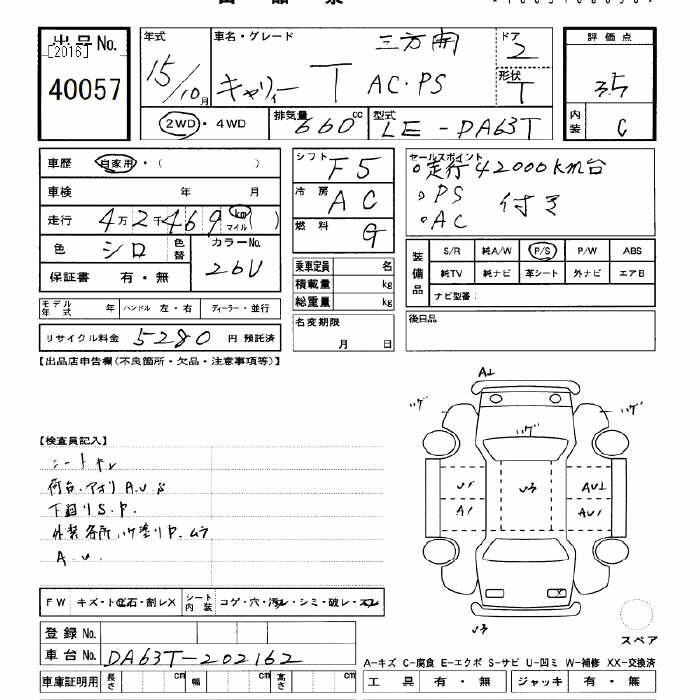 出品No.
[2016]
40057
年式
15/10月
車名・グレード
三方開
キャリィー T AC・PS
ドア
2
形状
T
評価点
3.5
内装
C
2WD・4WD
排気量
660cc
型式
LE-DA63T
車歴 自家用・( )
車検 年 月
走行 4万2千469 km マイル ( )
色 シロ 色替
カラーNo.
26U
保証書 有・無
モデル年式 年 ハンドル 左・右 ディーラー・並行
リサイクル料金 5280 円 預託済
シフト F5
冷房 AC
燃料 G
乗車定員 名
積載量 kg
総重量 kg
名変期限
月 日
セールスポイント
走行42000km台
PS
AC 付き
装備品
S/R 純A/W P/S P/W ABS
純TV 純ナビ 革シート 外ナビ エアB
ナビ型番:
後日品
【出品店申告欄(不良箇所・欠品・注意事項等)】
【検査員記入】
シートキレ
荷台、アオリ A.U.S
下廻り S.P.
外装各所ハゲ塗りP.ムラ
A.U.
FW キズ・トビ石・割レX
シート内装 コゲ・穴・汚レ・シミ・破レ・スレ
登録No.
車台No. DA63T-202162
車庫証明用 長さ cm 幅 cm 高さ cm
A1
ハゲ
ハゲ
ハゲ
U1
A1
U3
AU1
AU1
U3
スペア
A-キズ C-腐食 E-エクボ S-サビ U-凹ミ W-補修 XX-交換済
工具 有・無 ジャッキ 有・無